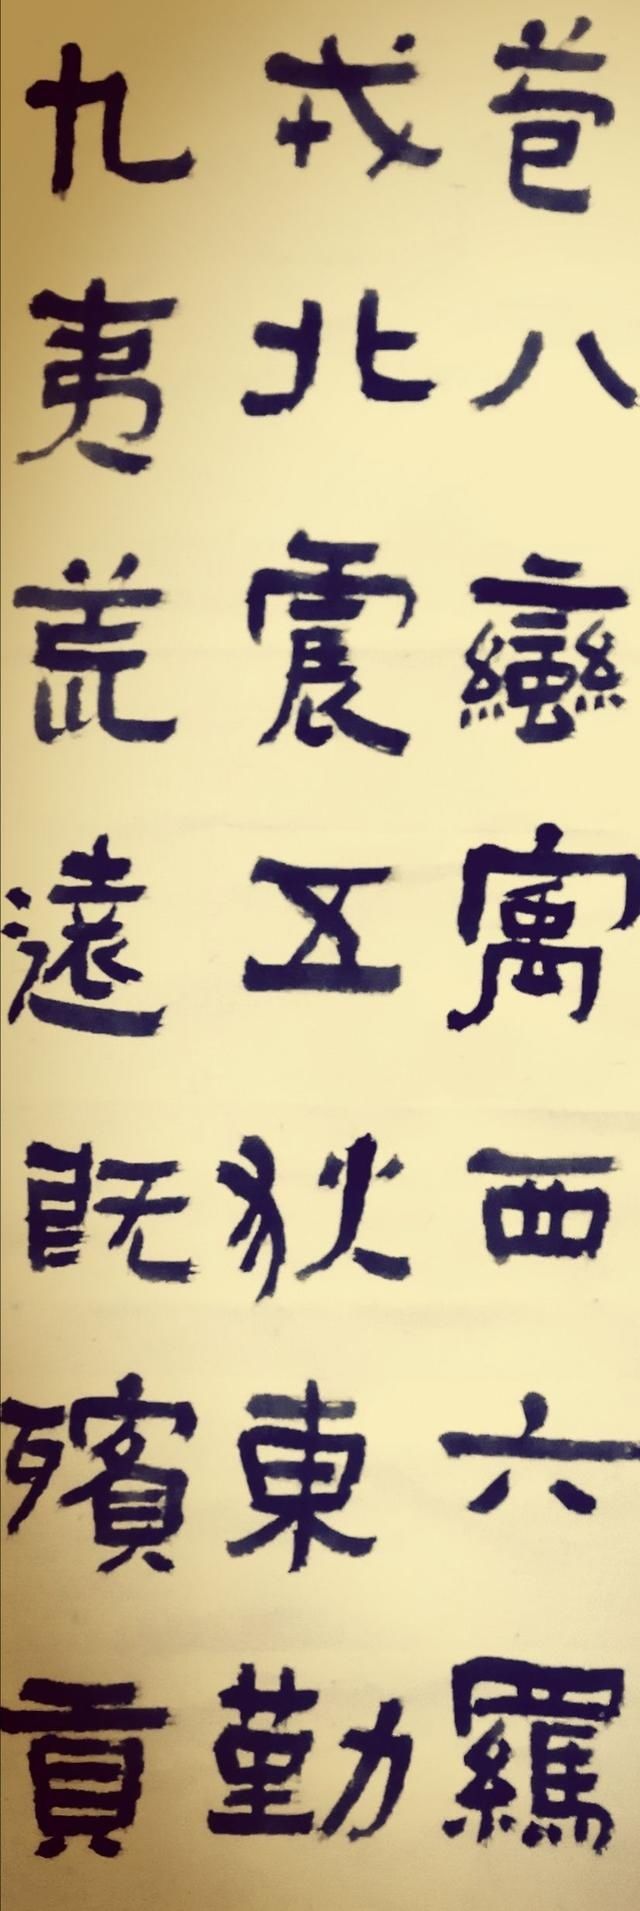 苞八蠻寓西六羈
戎北震五狄東勤
九夷荒遠既殯貢